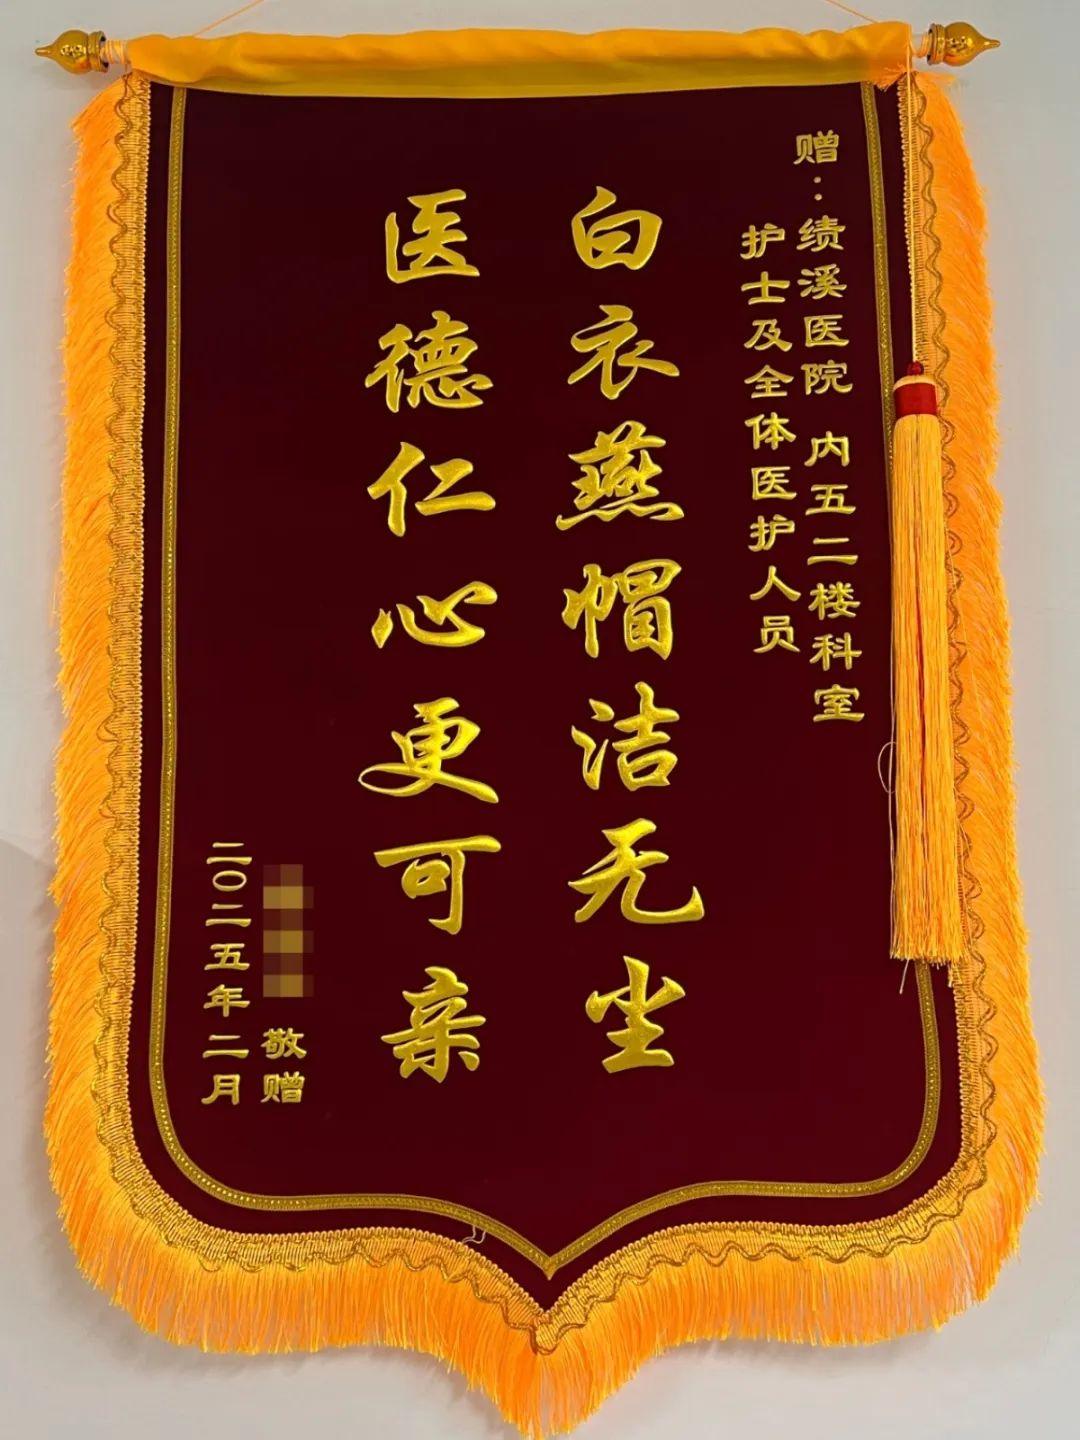 赠：绩溪医院 内五二楼科室
护士及全体医护人员
白衣燕帽洁无尘
医德仁心更可亲
敬赠
二〇二五年二月